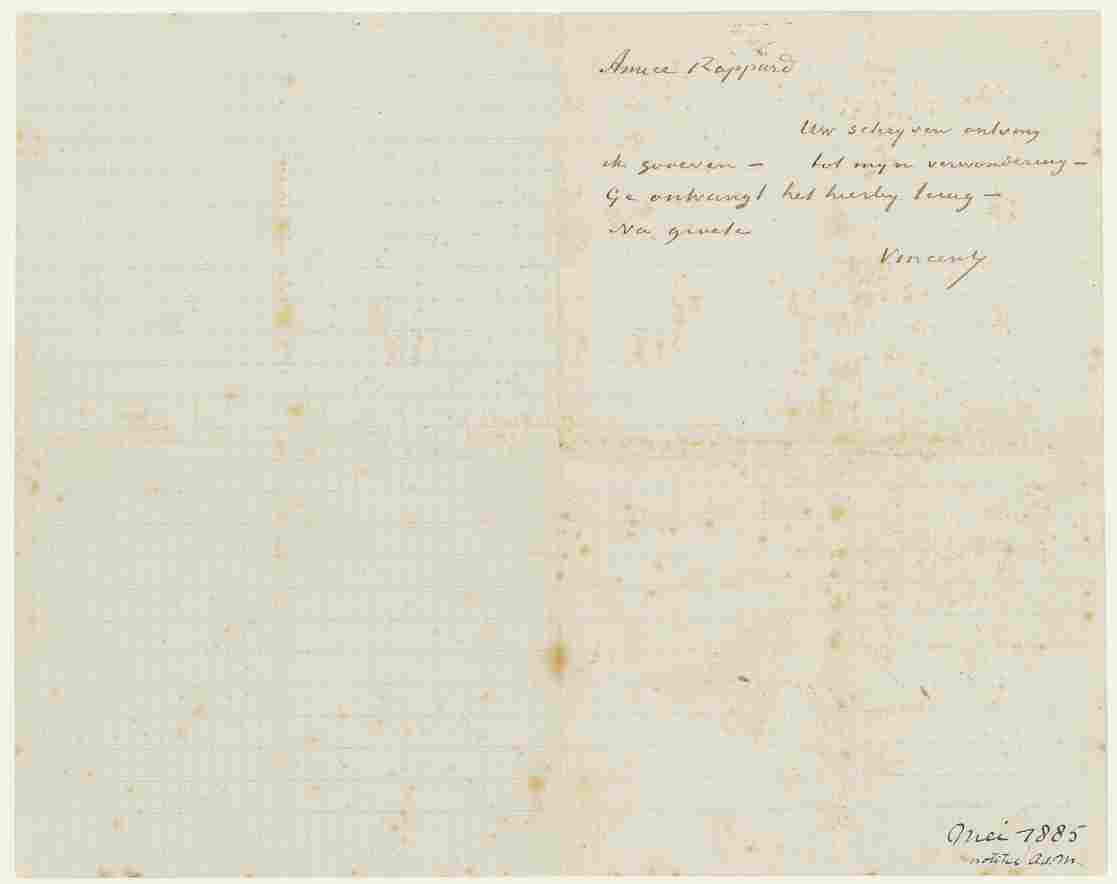 Amice Rappard
Uw schrijven ontving
ik zooeven — tot mijn verwondering —
Ge ontvangt het hierbij terug —
Na groete
Vincent
Mei 1885
notitie A.d.M.